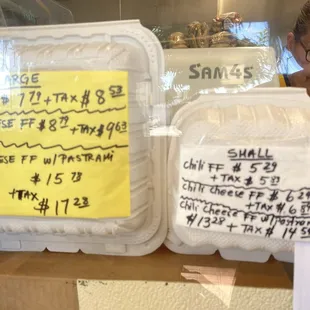 ARGE
$ 7 79 + TAX $ 8 53
ESE FF $ 8 79
+ TAX $ 9 63
ESE FF W/ PASTRAMI
$ 15 73
+ TAX
$ 17 23
SAM4S
SMALL
Chili FF $ 5 29
+ TAX $ 5
Chili Cheese FF $ 6 29
+ TAX $ 6
Chili Cheese FF W/ Pastrami
$ 13 28 + TAX $ 14